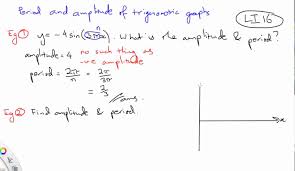 Period and amplitude of trigonometric graphs
LI 16
Eg ① y = -4 sin(3πx). What is the amplitude & period?
amplitude = 4 no such thing as -ve amplitude
period = 2π/n = 2π/3π
= 2/3
ans.
Eg ② Find amplitude & period.
x